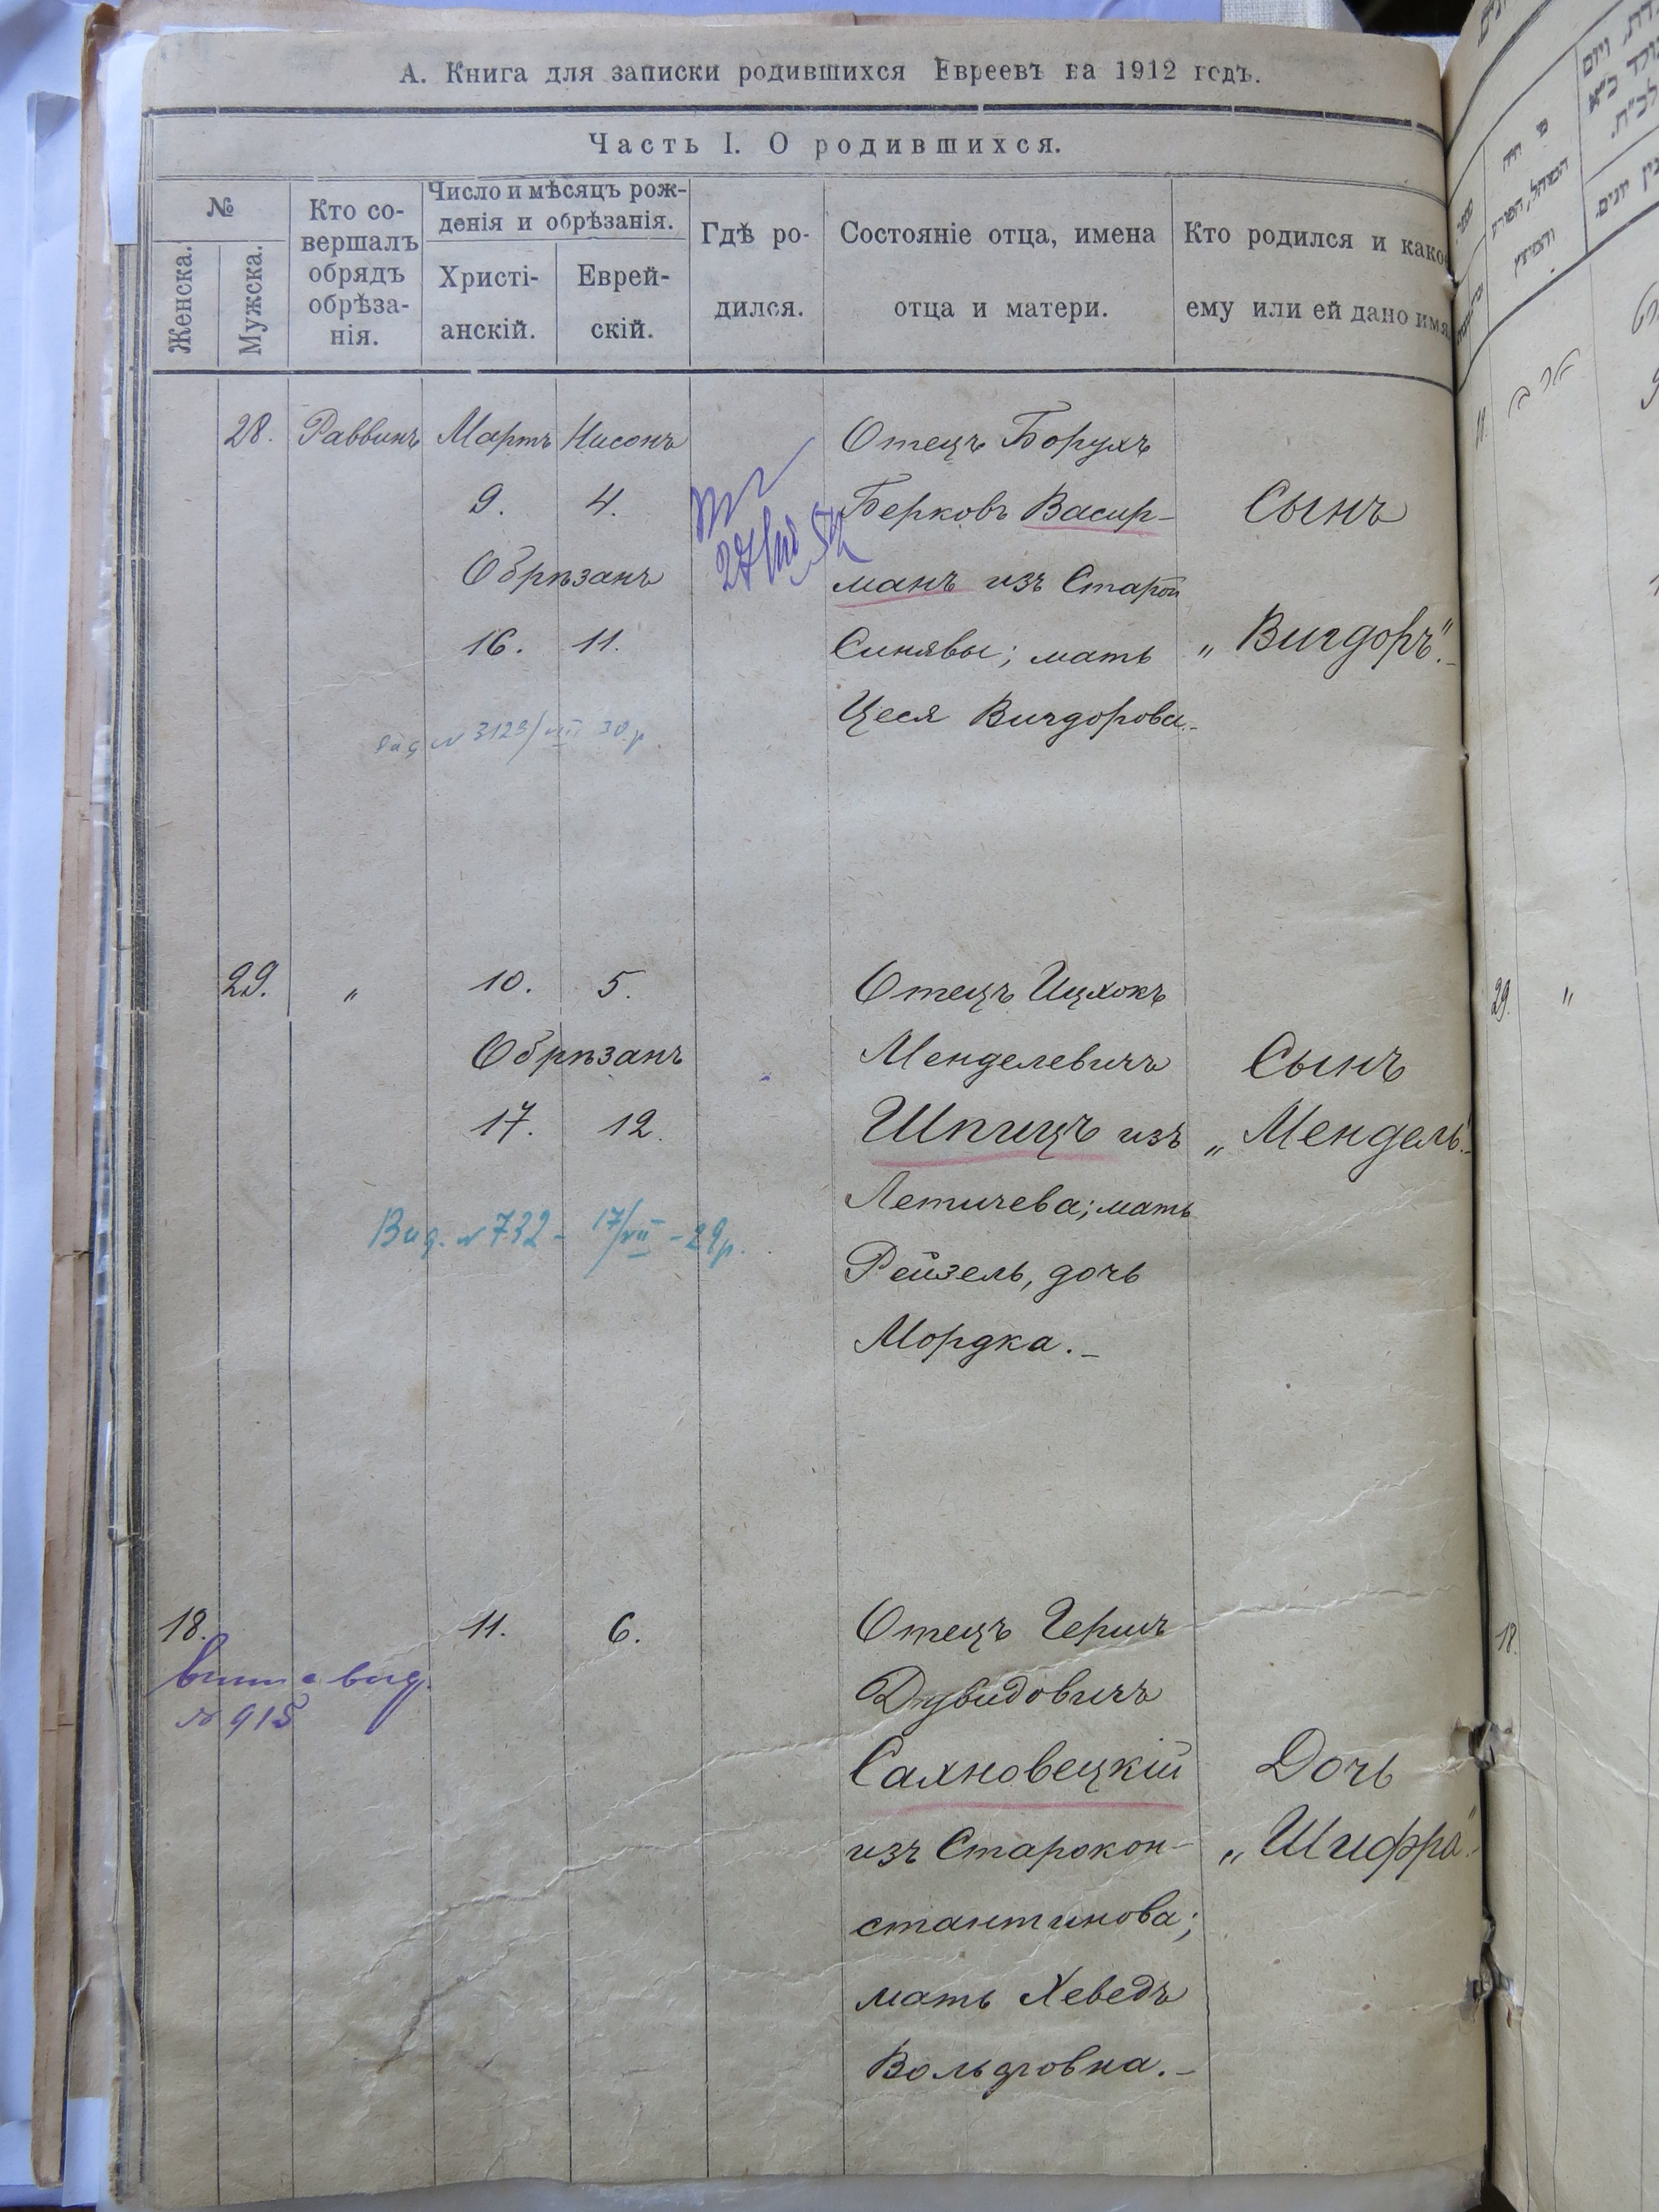 А. Книга для записки родившихся Евреевъ на 1912 годъ.
Часть I. О родившихся.
№
Женска.
Мужска.
Кто со-
вершалъ
обрядъ
обрѣза-
нія.
Число и мѣсяцъ рож-
денія и обрѣзанія.
Христі-
анскій.
Еврей-
скій.
Гдѣ ро-
дился.
Состояніе отца, имена
отца и матери.
Кто родился и како
ему или ей дано имя
28. Раввинъ Мартъ Нисонъ
9. 4.
Обрѣзанъ
16. 11.
№ 3123/VII 30 р.
Отецъ Борухъ
Берковъ Васир-
манъ изъ Старой
Синявы; мать
Цеся Вигдорова.-
Сынъ
„Вигдоръ".-
29. „ 10. 5.
Обрѣзанъ
17. 12.
Вид. № 732 - 17/VII - 29 р.
Отецъ Ицхокъ
Менделевичъ
Шпицъ изъ
Летичева; мать
Рейзель, дочь
Мордка.-
Сынъ
„Мендель".-
18. 11. 6.
вид.
№ 915
Отецъ Гершъ
Дувидовичъ
Сахновецкій
изъ Старокон-
стантинова;
мать Хеведъ
Вольфовна.-
Дочь
„Шифра".
29. „
18.